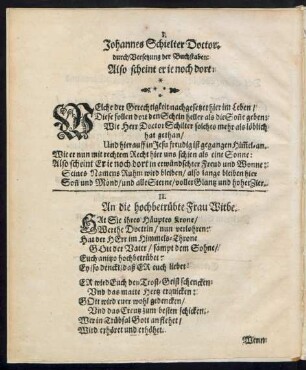 I.
Johannes Schielter Doctor.
durch Versetzung der Buchstaben:
Also scheint er ie noch dort:
WElche der Gerechtigkeit nachgesetzet hier im Leben/
Diese sollen dort den Schein heller als die Soñe geben:
Wie Herr Doctor Schilter solches mehr als löblich
hat gethan/
Und hierauff in Jesu freudig ist gegangen Him̃el-an.
Wie er nun mit rechtem Recht hier uns schien als eine Sonne:
Also scheint Er ie noch dort in erwündschter Freud und Wonne:
Seines Namens Ruhm wird bleiben/ also lange bleiben hier
Soñ und Mond/ und alle Sterne/ voller Glantz und hoher Zier.
II.
An die hochbetrübte Frau Witbe.
HAt Sie ihres Häuptes Krone/
Werthe Doctrin/ nun verlohren:
Hat der HErr im Himmels-Throne
GOtt der Vater/ sampt dem Sohne/
Euch anitzo hochbetrübt:
Ey/ so denckt/ daß ER auch liebet
ER wird Euch den Trost-Geist schencken:
Und das matte Hertz erquicken:
GOtt wird eurer wohl gedencken/
Und das Creutz zum besten schicken.
Wer in Trübsal Gott anflehet/
Wird erhöret und erhöhet.
Wenn